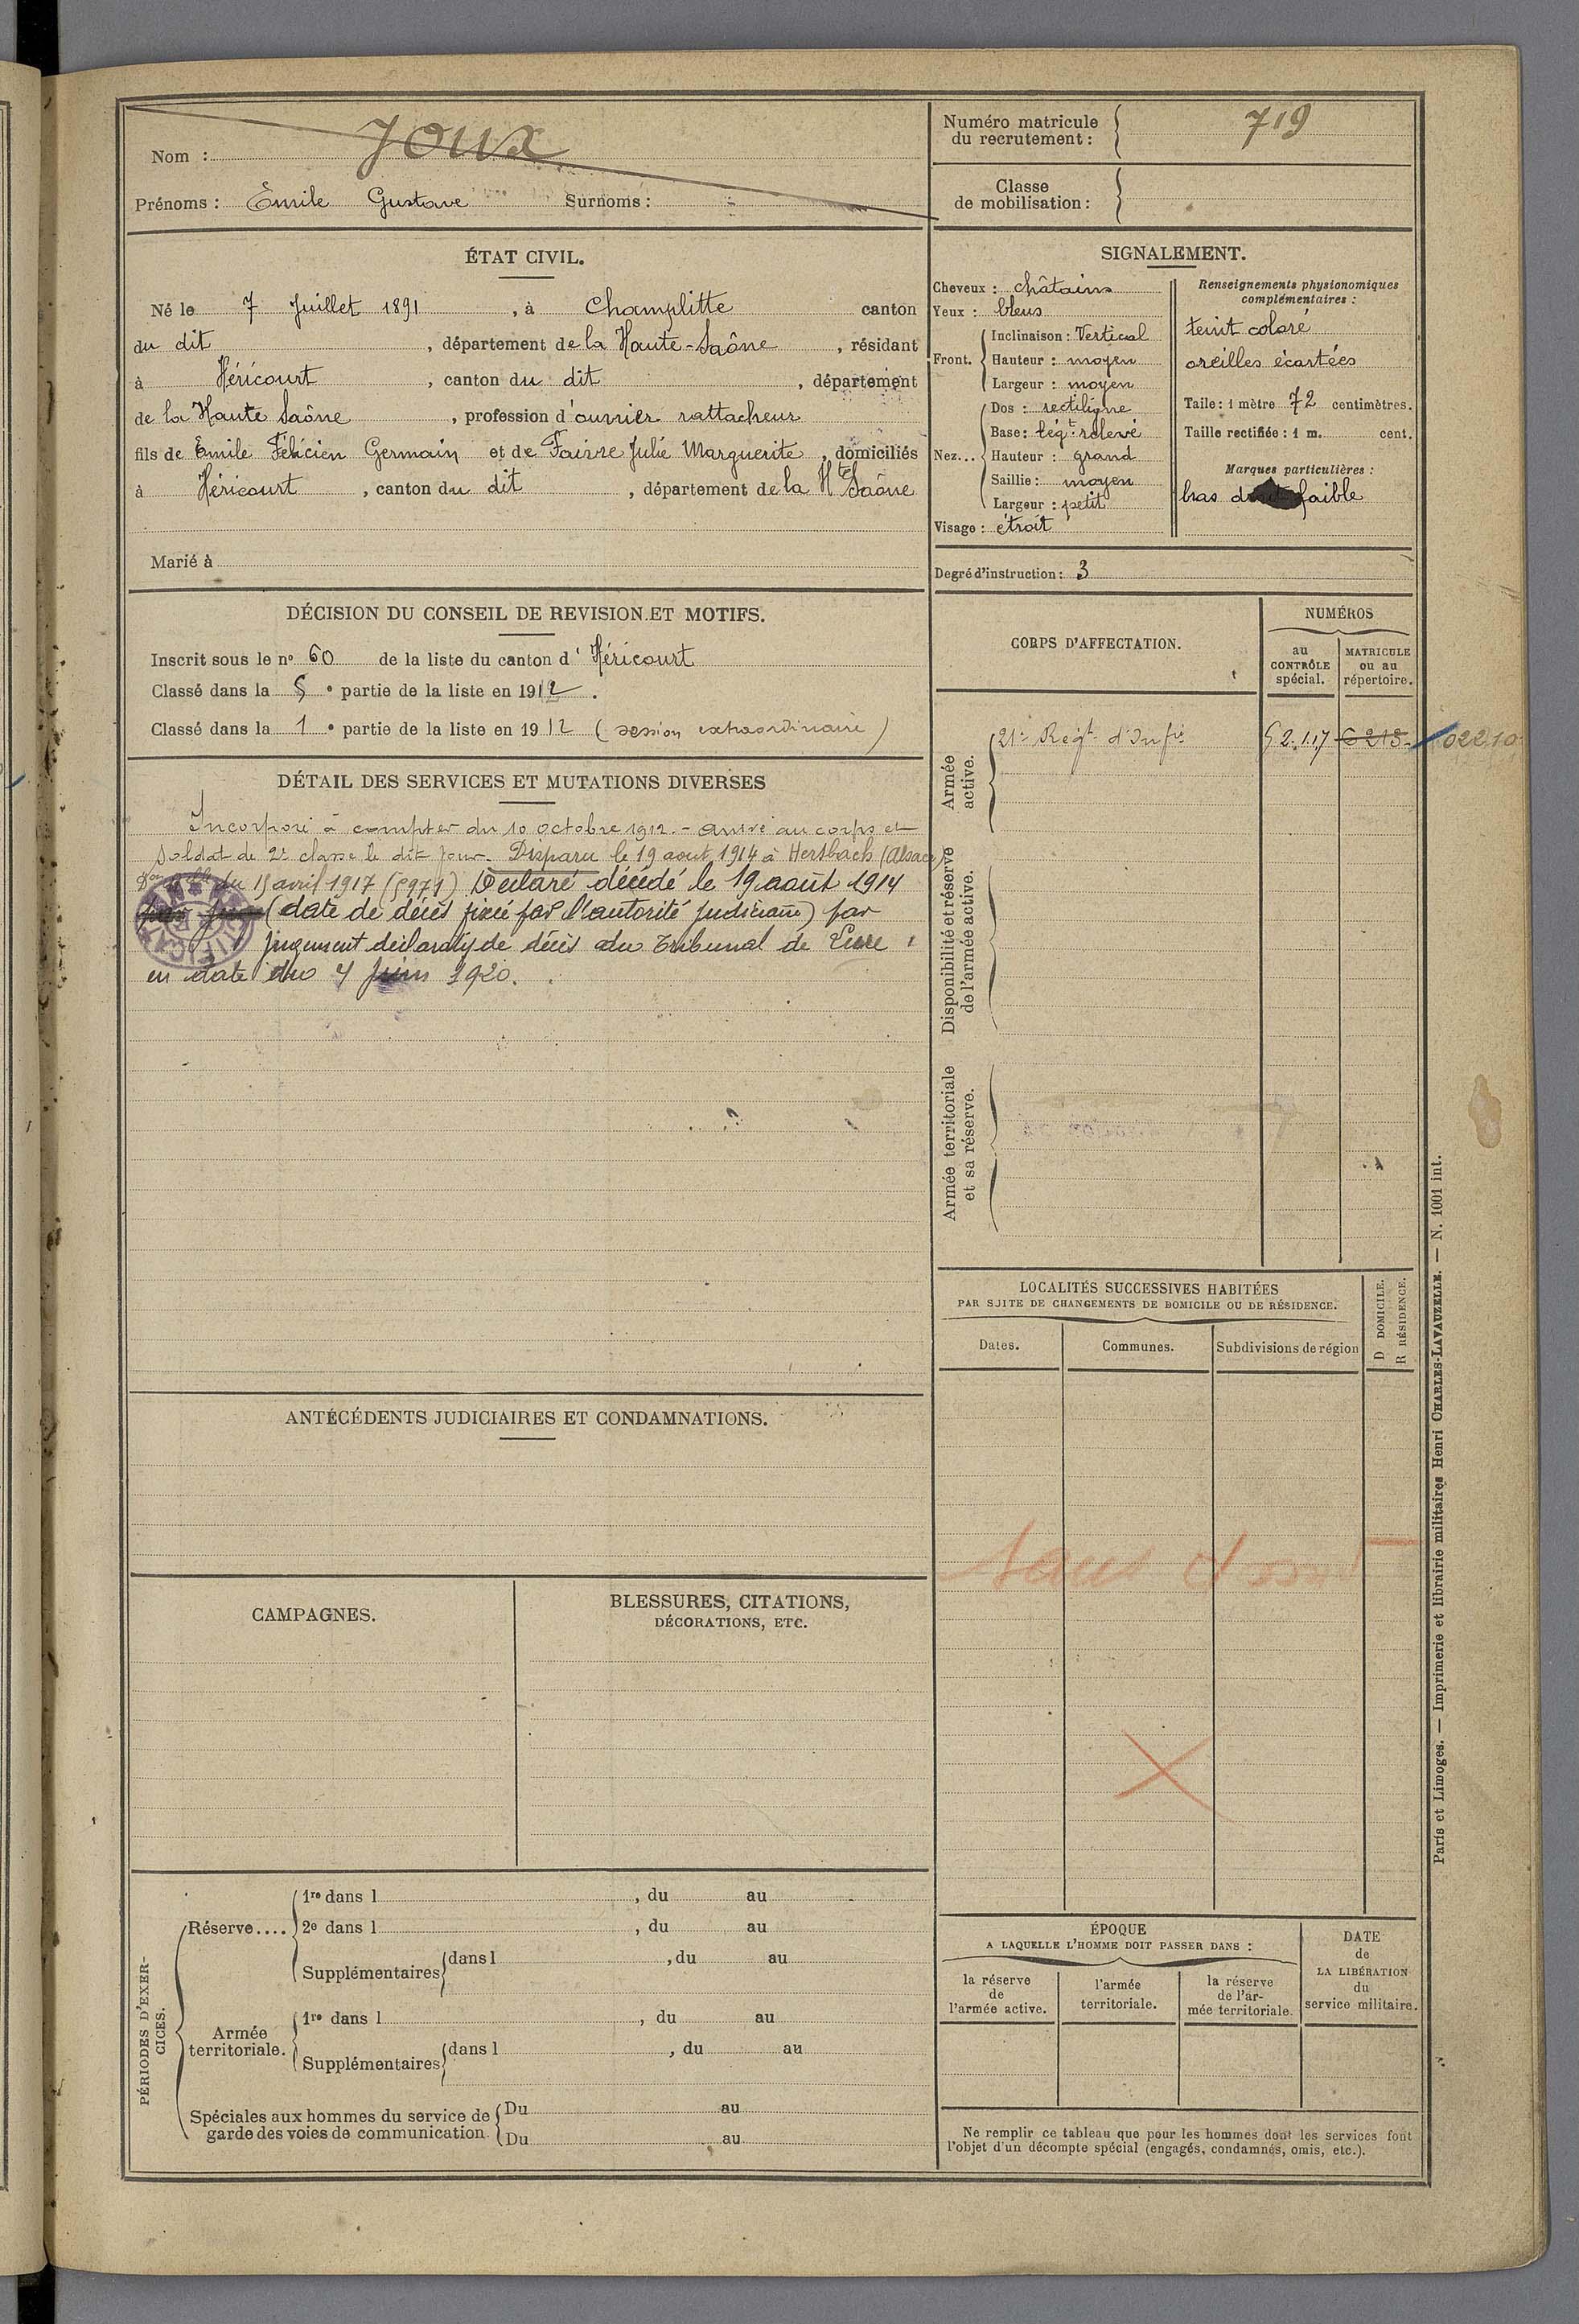 Nom : Joux
Prénoms : Émile Gustave Surnoms :
ÉTAT CIVIL.
Né le 7 Juillet 1891, à Champlitte canton
du dit, département de la Haute-Saône, résidant
à Héricourt, canton du dit, département
de la Haute Saône, profession d'ouvrier rattacheur
fils de Émile Félicien Germain et de Faivre Julie Marguerite, domiciliés
à Héricourt, canton du dit, département de la Hte Saône
Marié à
DÉCISION DU CONSEIL DE REVISION ET MOTIFS.
Inscrit sous le no 60 de la liste du canton d'Héricourt
Classé dans la 5e partie de la liste en 1912.
Classé dans la 1e partie de la liste en 1912 (session extraordinaire)
DÉTAIL DES SERVICES ET MUTATIONS DIVERSES
Incorporé à compter du 10 octobre 1912. - arrivé au corps et
soldat de 2e classe le dit jour. Disparu le 19 aout 1914 à (Alsace)
du avril 1917 Déclaré décédé le 19 août 1914
(date de décès fixée par l'autorité judiciaire) par
jugement déclaratif de décès du Tribunal de Lure
en date du juin 1920.
ANTÉCÉDENTS JUDICIAIRES ET CONDAMNATIONS.
CAMPAGNES.
BLESSURES, CITATIONS,
DÉCORATIONS, ETC.
PÉRIODES D'EXER-
CICES.
Réserve....
1re dans l , du au
2e dans l , du au
Supplémentaires dans l , du au
Armée
territoriale.
1re dans l , du au
Supplémentaires dans l , du au
Spéciales aux hommes du service de
garde des voies de communication.
Du au
Du au
Numéro matricule
du recrutement : 719
Classe
de mobilisation :
SIGNALEMENT.
Cheveux : châtains
Yeux : bleus
Front.
Inclinaison : Vertical
Hauteur : moyen
Largeur : moyen
Nez...
Dos : rectiligne
Base : légt relevé
Hauteur : grand
Saillie : moyen
Largeur : petit
Visage : étroit
Renseignements physionomiques
complémentaires :
teint coloré
oreilles écartées
Taile : 1 mètre 72 centimètres.
Taille rectifiée : 1 m. cent.
Marques particulières :
bras droit faible
Degré d'instruction : 3
CORPS D'AFFECTATION.
NUMÉROS
au
CONTRÔLE
spécial.
MATRICULE
ou au
répertoire.
Armée
active.
21e Régt d'Infie
02210
Disponibilité et réserve
de l'armée active.
Armée territoriale
et sa réserve.
LOCALITÉS SUCCESSIVES HABITÉES
PAR SJITE DE CHANGEMENTS DE DOMICILE OU DE RÉSIDENCE.
D DOMICILE.
R RÉSIDENCE.
Dates.
Communes.
Subdivisions de région
ÉPOQUE
A LAQUELLE L'HOMME DOIT PASSER DANS :
la réserve
de
l'armée active.
l'armée
territoriale.
la réserve
de l'ar-
mée territoriale.
DATE
de
LA LIBÉRATION
du
service militaire.
Ne remplir ce tableau que pour les hommes dont les services font
l'objet d'un décompte spécial (engagés, condamnés, omis, etc.).
Paris et Limoges. — Imprimerie et librairie militaires Henri CHARLES-LAVAUZELLE. — N. 1001 int.